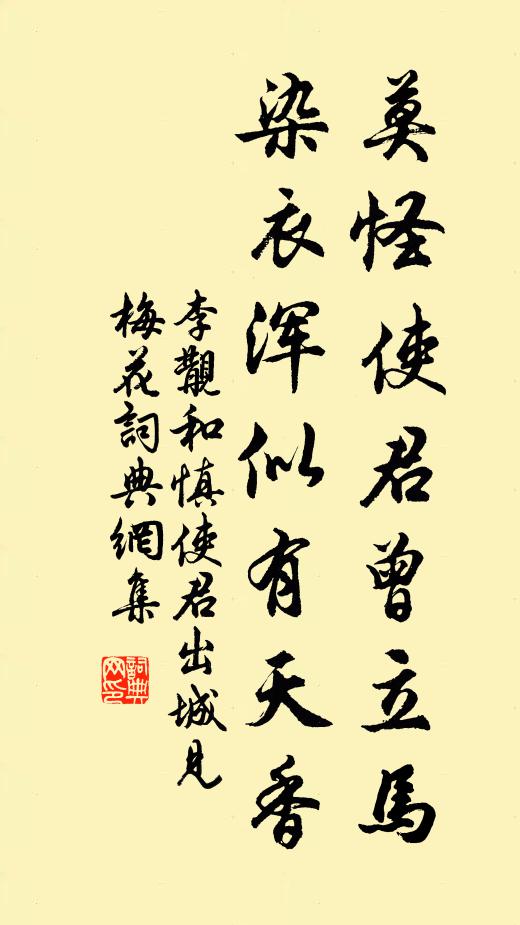 莫怪使君曾立馬
染衣渾似有天香
李覯和慎使君出城見
梅花詞典網集
詞典
网印